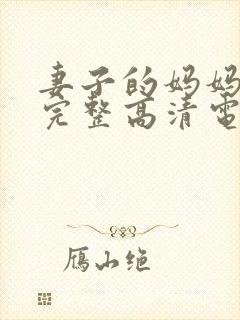 妻子的妈妈
完整高清电
雁山绝